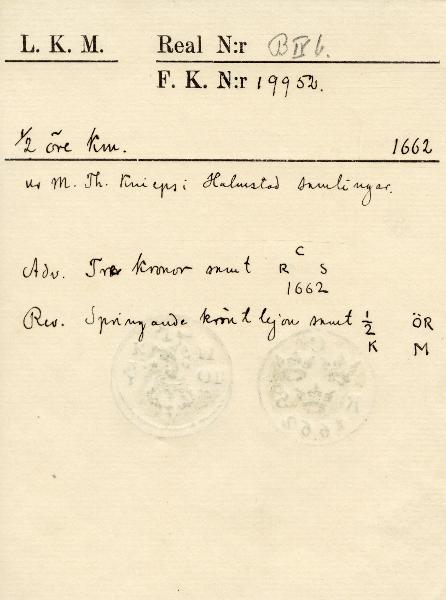 L. K. M. Real N:r B IV b.
F. K. N:r 19952.
1/2 öre Km. 1662
ur M. Th. Knieps i Halmstad samlingar.
Adv. Tre kronor samt C
R S
1662
Rev. Springande krönt lejon samt 1/2 ÖR
K M